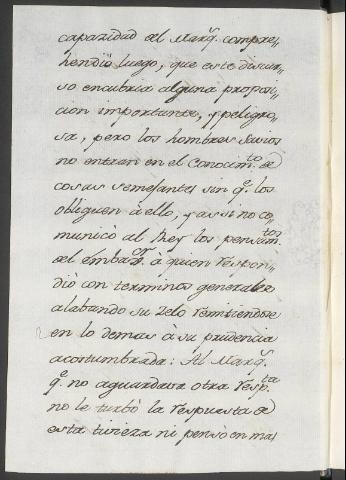 capazidad del Marq.^s compre,,
hendiò luego, que este discur,,
so encubria alguna proposi,,
cion importante, y peligro,,
sa, pero los hombres savios
no entran en el Conocim.^to de
cosas semejantes sin q.^e los
obliguen à ello, y assi no co,,
municò al Rey los pensam.^tos
del embax.^or à quien respon,,
diò con terminos generales
alabando su zelo remitiendose
en lo demas à su prudencia
acostumbrada: Al Marq.^s
q.^e no aguardava otra resp.^ta
no le turbò la respuesta de
esta tivieza ni pensò en mas